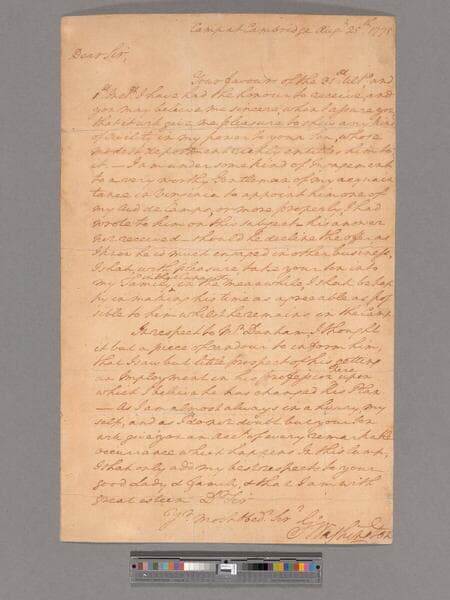 Camp at Cambridge Aug.t 25th 1775
Dear Sir,
Your favours of the 31st Ult.o and
1st Inst. I have had the honour to receive, and
you may believe me sincere, when I assure you
that it will give me pleasure to shew any kind
of civility in my power to your Son, whose
modest deportment richly entitles him to
it — I am under some kind of Ingagement
to a very worthy Gentleman of my acquain
tance in Virginia to appoint him one of
my Aid de Camps, or more properly, I had
wrote to him on this subject — his answer
not received — should he decline the offer, as
I hear he is much engaged in other business,
I shall, with pleasure take your Son into
my Family, in the meanwhile, I shall be hap
py in making his time as agreeable as pos
sible to him whilst he remains in the Camp
In respect to Mr Dunham, I thought
it but a piece of candour to inform him
that I saw but little prospect of his getting
an Imployment in his profession here upon
which I believe he has changed his Plan
— As I am almost always in a hurry my
self, and as I do not doubt but your Son
will give you an acct of every remarkable
occurrance which happens in this Camp,
I shall only add my best respects to your
good Lady & family, & that I am with
great esteem Dr Sir
Yr Most Obedt Ser
Go Washington